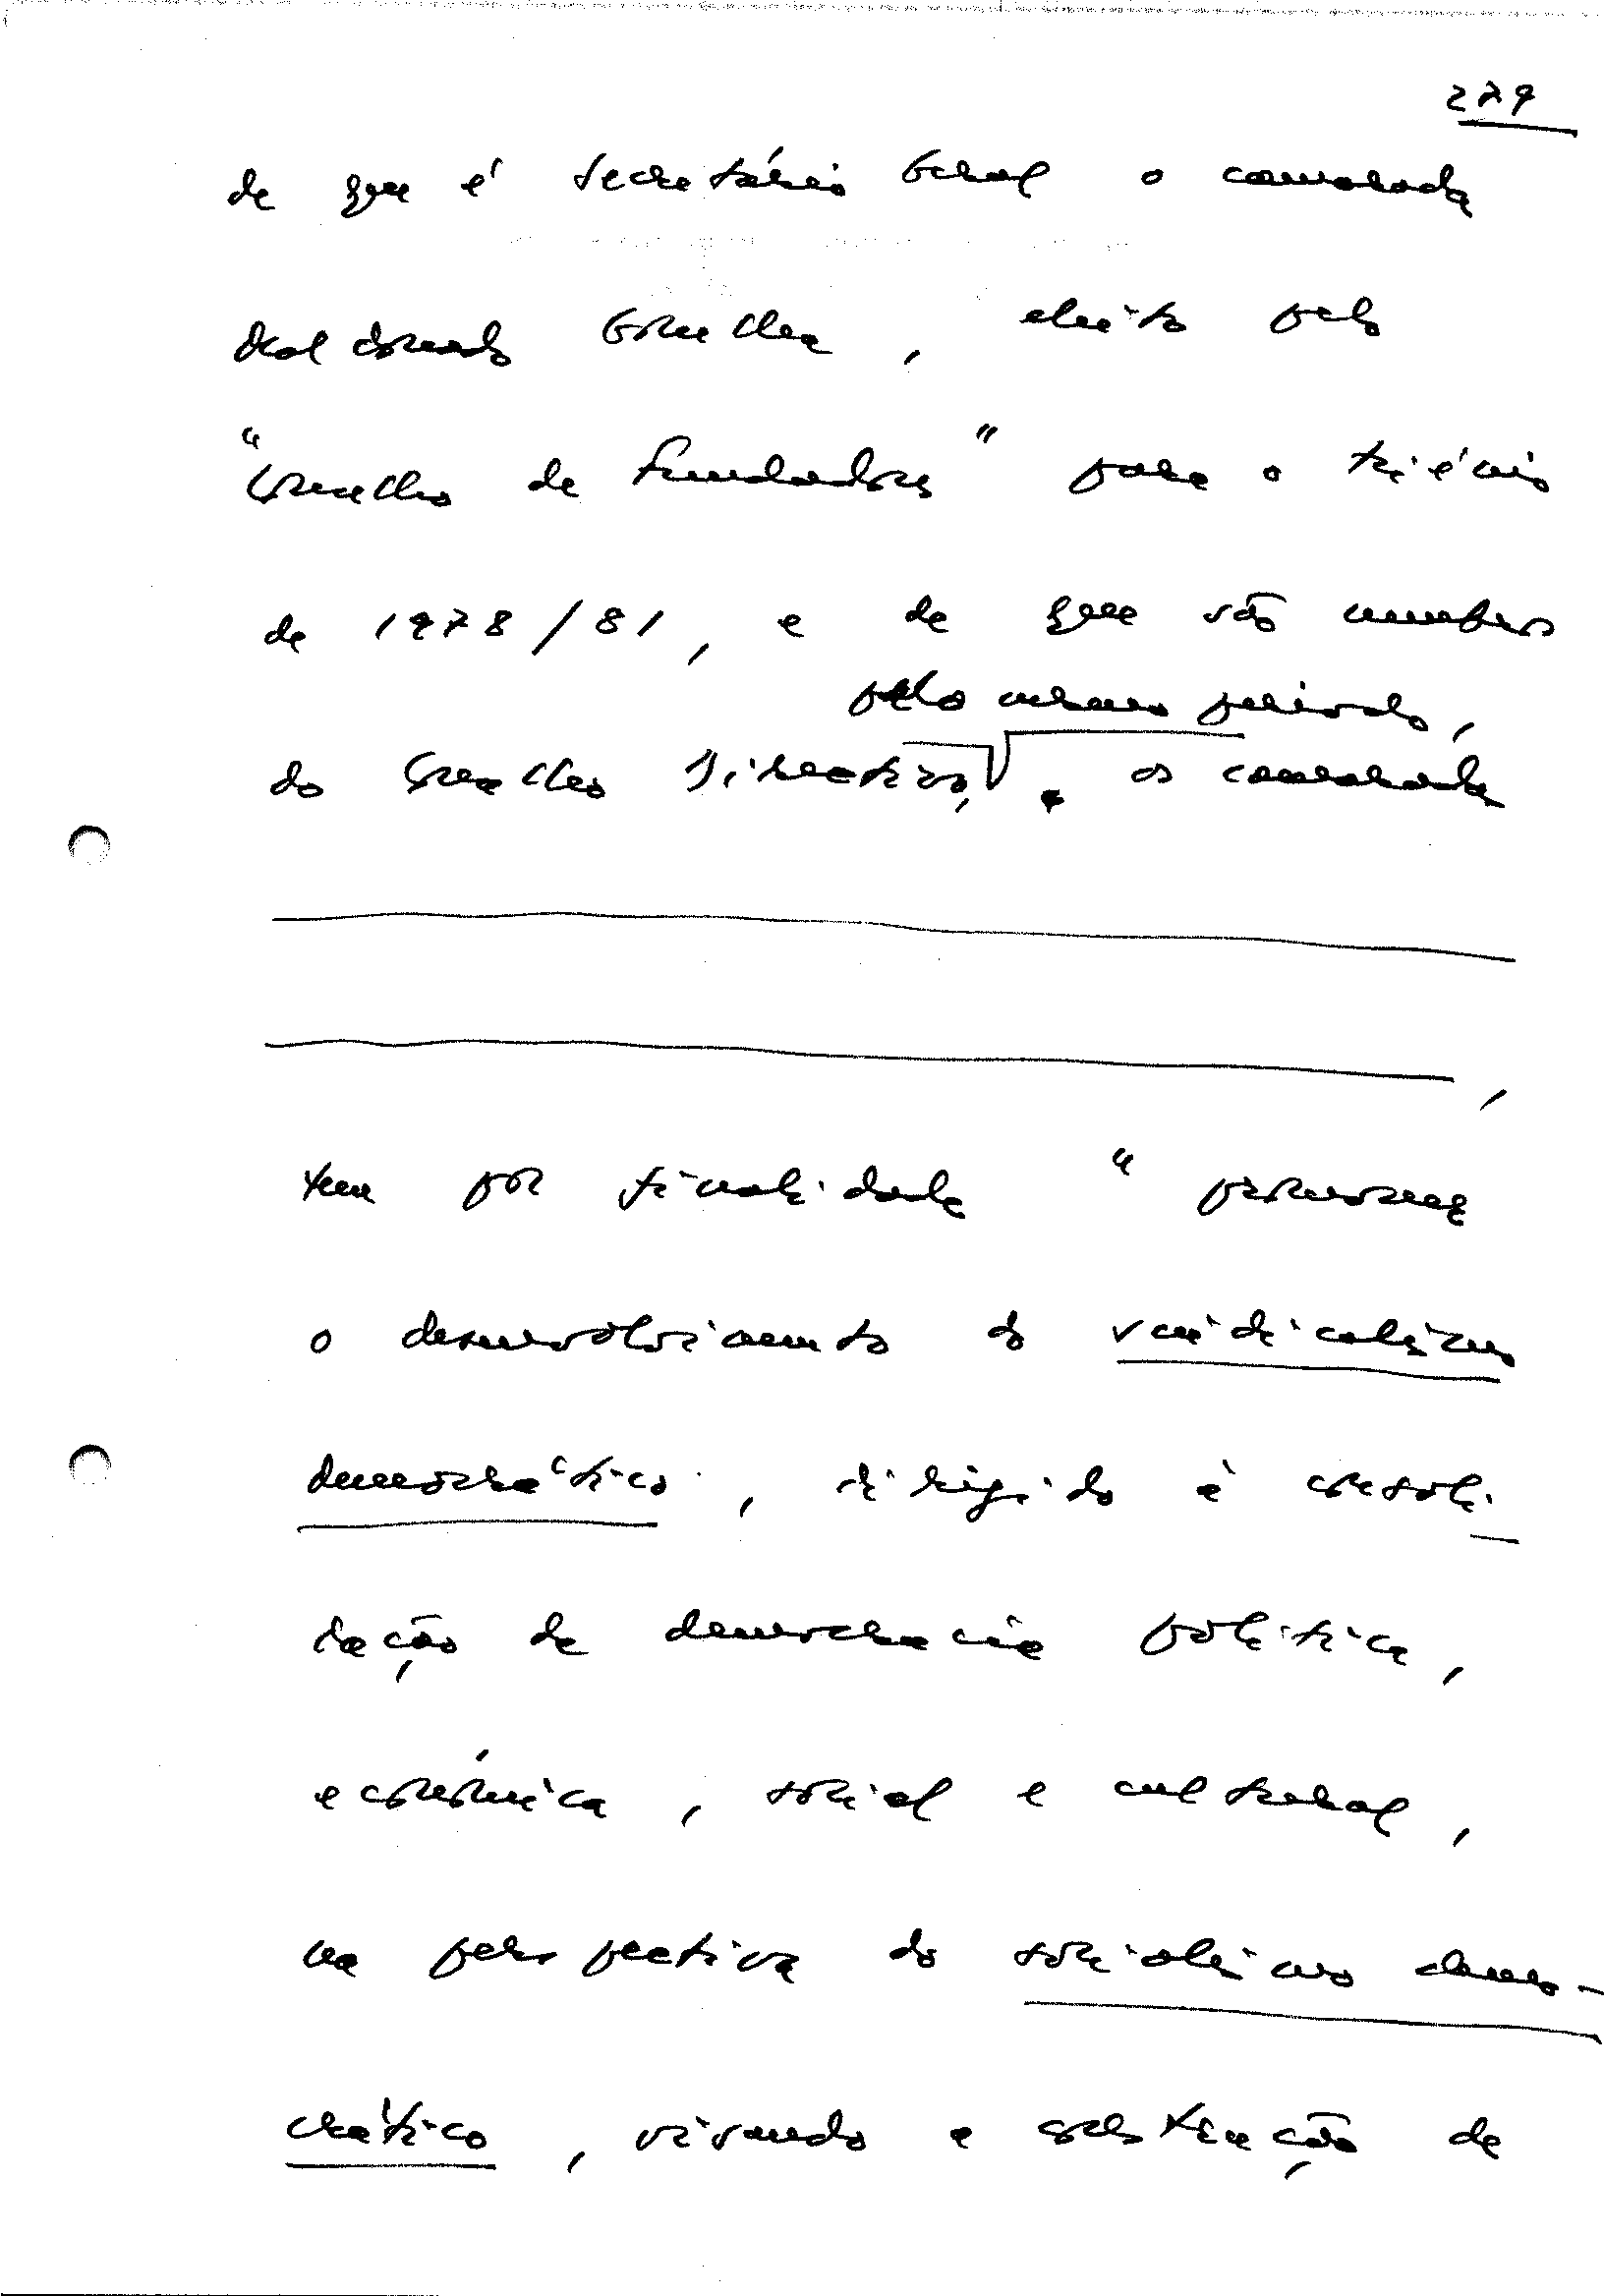 279
de que é Secretário Geral o camarada
Maldonado Gonelha, eleito pelo
"Conselho de Fundadores" para o triénio
de 1978/81, e de que são membros
pelo mesmo período,
do Conselho Directivo, os camaradas
tem por finalidade "promover
o desenvolvimento do sindicalismo
democrático, dirigido à consoli-
dação da democracia política,
económica, social e cultural,
na perspectiva do socialismo demo-
crático, visando a substituição de